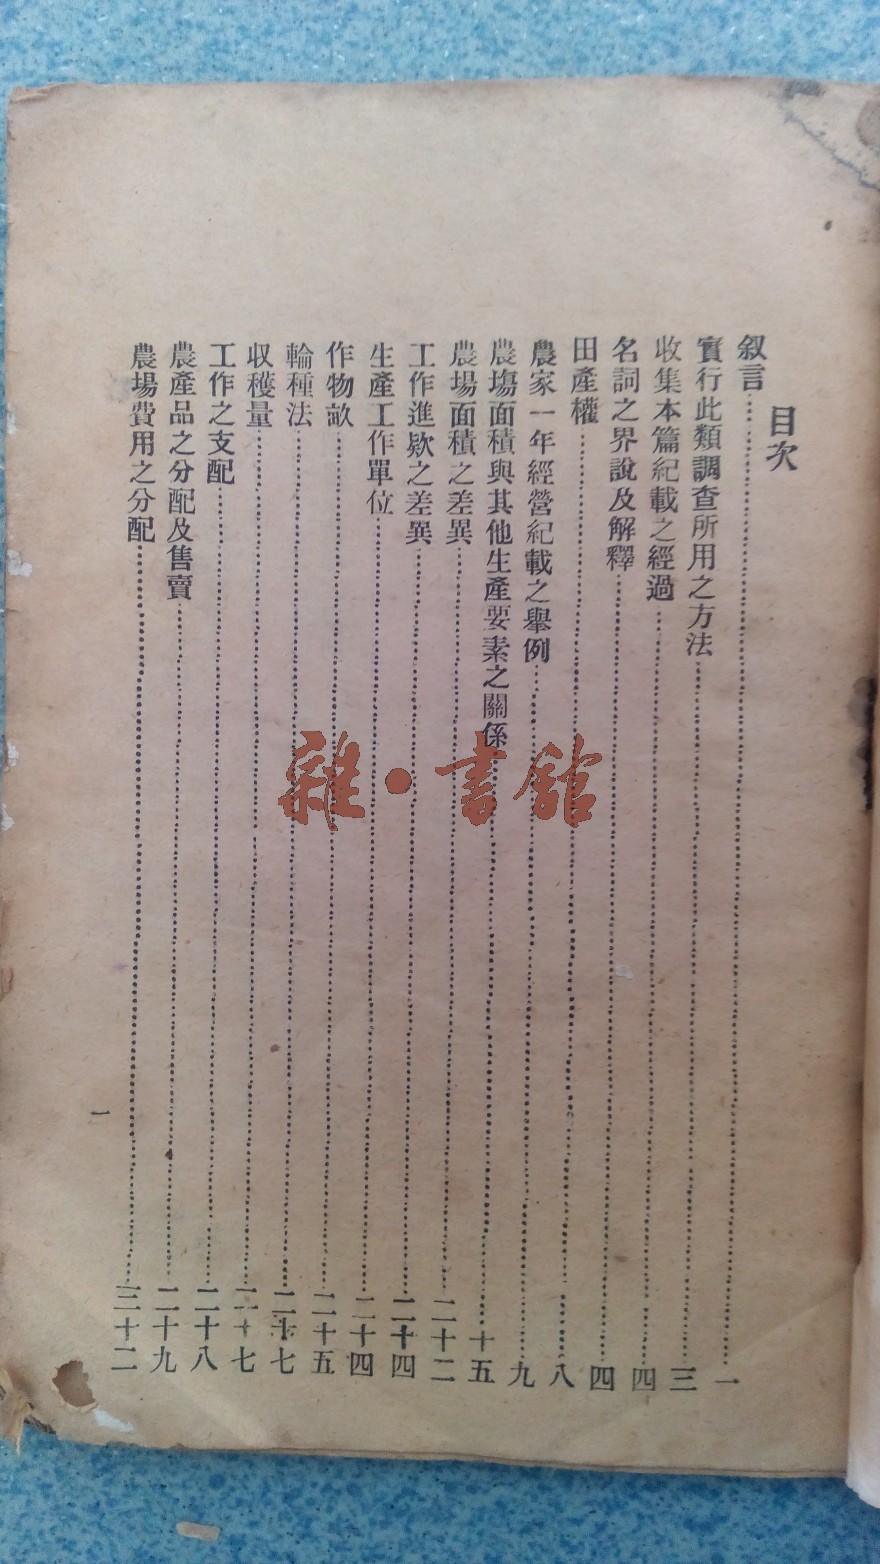 目次
叙言……一
實行此類調查所用之方法……三
收集本篇紀載之經過……四
名詞之界說及解釋……四
田產權……八
農家一年經營紀載之舉例……九
農塲面積與其他生產要素之關係……十五
農場面積之差異……二十二
工作進欵之差異……二十四
生產工作單位……二十四
作物畝……二十五
輪種法……二十七
収穫量……二十七
工作之支配……二十八
農產品之分配及售賣……二十九
農場費用之分配……三十二
一
雜·書館